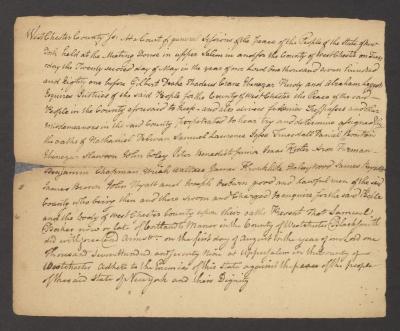 West Chester County ss: At a Court of general Sessions of the Peace of the People of the State of New
York held at the Meeting House in upper Salem in and for the County of Westchester on Tues
day the Twenty second day of May in the year of our Lord one thousand seven hundred
and Eighty one before Gilbert Drake Thadeus Crane Ebenezer Purdy and Abraham
Esquires Justices of the said People for the County of Westchester the Peace of the said
People in the County aforesaid to keep and also divers felonies Trespasses and other
misdemeanors in the said County perpetrated to hear try and determine assigned By
the oaths of Nathaniel Samuel Laurence Daniel
Ebenezer John Cooley Peter Benedict junior Isaac Aron Furman
Benjamin Chapman James James
James Brown John Hyatt and Joseph good and lawful men of the said
County who being then and there sworn and Charged to enquire for the said People
and the body of West Chester County upon their oaths Present That Samuel
now or late of Cortlandt Manor in the County of Westchester Blacksmith
did with force and Arms on the first day of August in the year of our Lord one
Thousand Seven Hundred and seventy Nine at upper Salem in the County of
Westchester Adhere to the Enemies of this State against the peace of the people
of the said State of New York and their Dignity